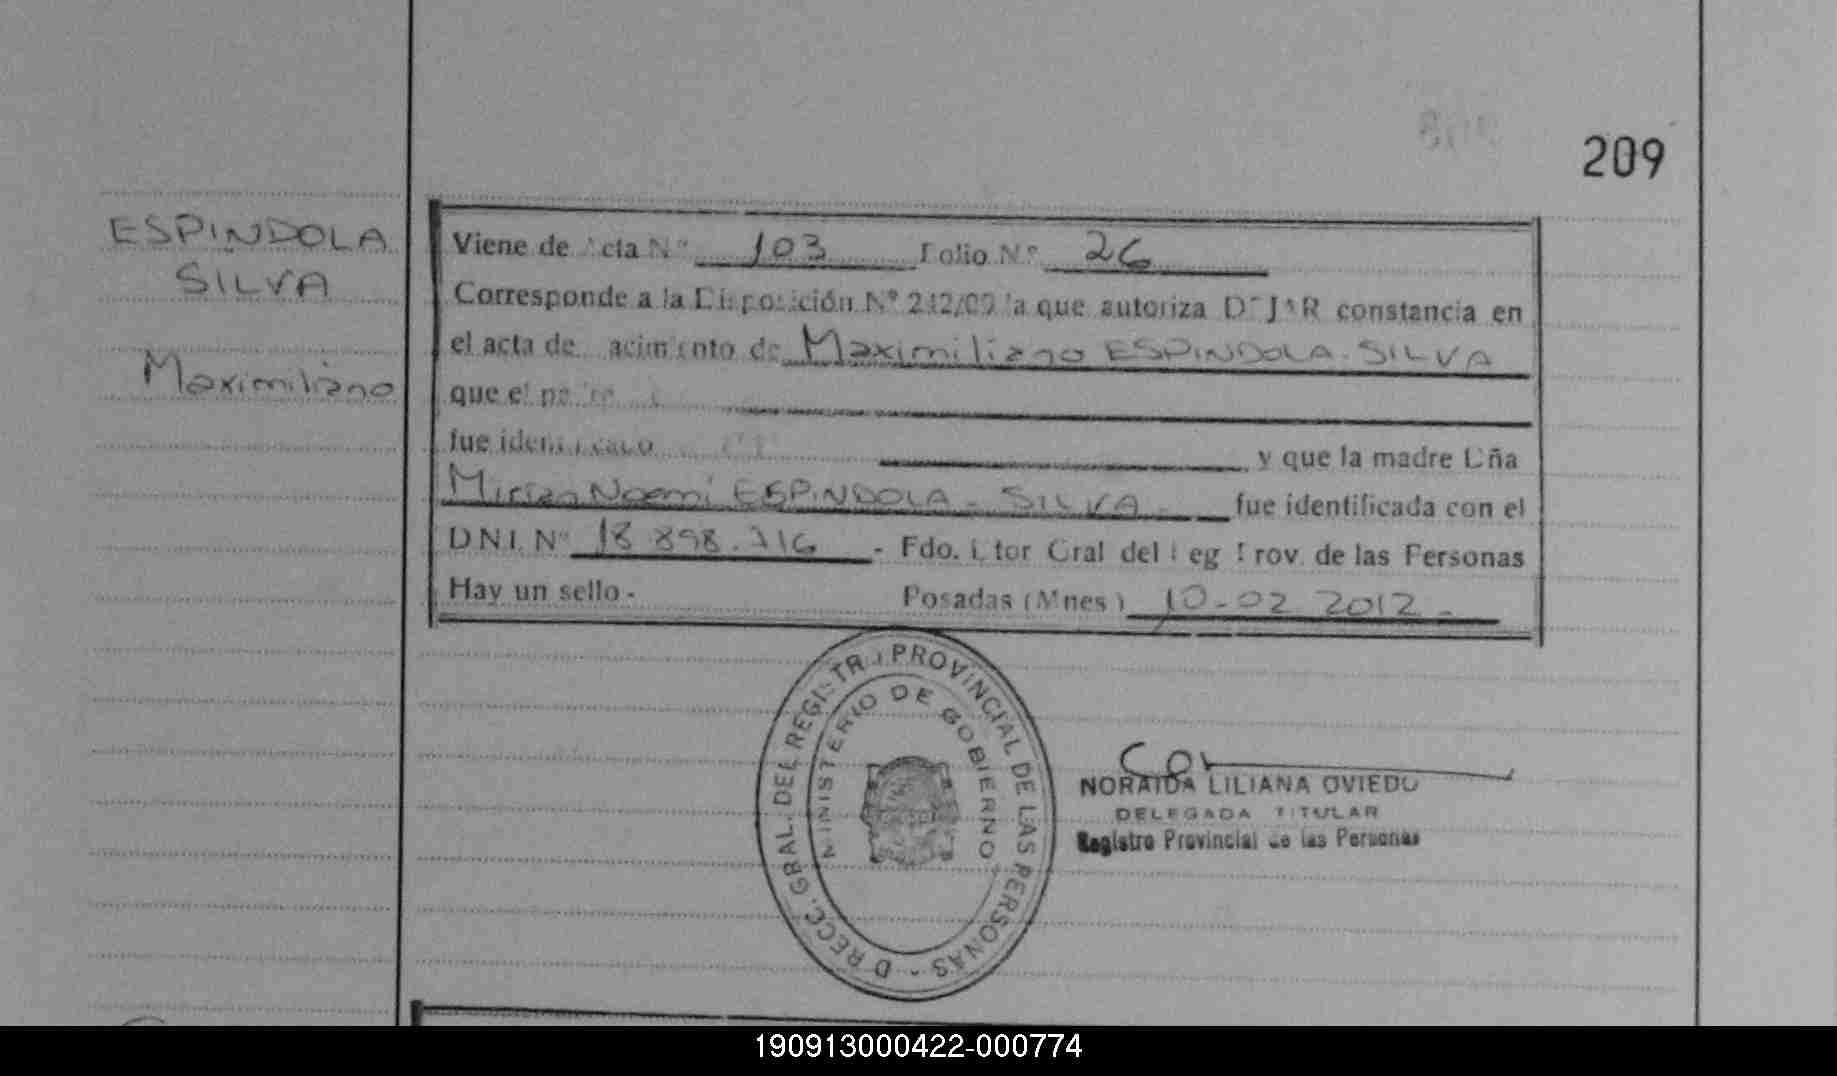 209
ESPINDOLA
SILVA
Maximiliano
Viene de Acta Nº 103 Folio Nº 26
Corresponde a la Disposición Nº 242/09 la que autoriza DEJAR constancia en
el acta de nacimiento de Maximiliano ESPINDOLA. SILVA
que el padre
fue identificado y que la madre Dña
Mirian Noemí ESPINDOLA - SILVA - fue identificada con el
DNI. Nº 18 898.716 - Fdo. Dtor Gral del Reg Prov. de las Personas
Hay un sello - Posadas (Mnes) 10-02 2012 -
DIRECC. GRAL. DEL REGISTRO PROVINCIAL DE LAS PERSONAS -
MINISTERIO DE GOBIERNO
NORAIDA LILIANA OVIEDO
DELEGADA TITULAR
Registro Provincial de las Personas
190913000422-000774